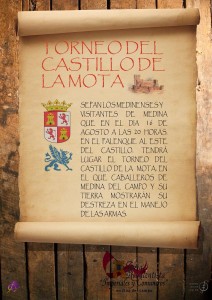 TORNEO DEL
CASTILLO DE
LA MOTA
SEPAN LOS MEDINENSES Y
VISITANTES DE MEDINA
QUE EN EL DIA 16 DE
AGOSTO A LAS 20 HORAS
EN EL PALENQUE AL ESTE
DEL CASTILLO. TENDRÁ
LUGAR EL TORNEO DEL
CASTILLO DE LA MOTA EN
EL QUE CABALLEROS DE
MEDINA DEL CAMPO Y SU
TIERRA MOSTRARÁN SU
DESTREZA EN EL MANEJO
DE LAS ARMAS.
Imperiales y Comuneros